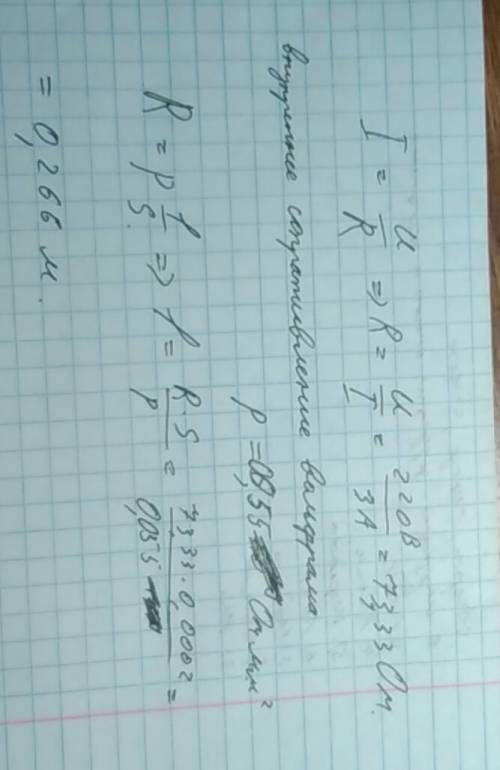 I = U/R => R = U/I = 220В/3А = 73,33 Ом.
внутреннее сопративление вольфрама
ρ = 0,055 Ом мм²
R = ρ l/S. => l = R·S/ρ = 73,33·0,0002/0,055 =
= 0,266 м.